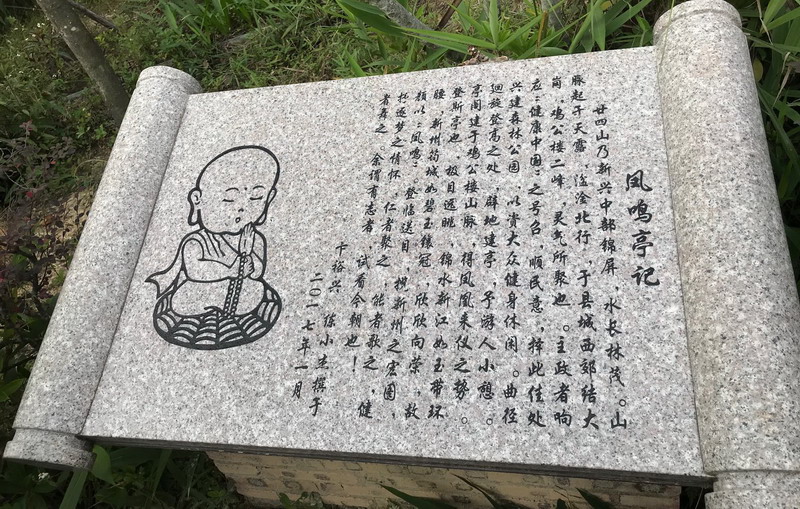 凤鸣亭记
廿四山乃新兴中部锦屏，水长林茂。山
脉起于天露，逶迤北行，于县城西郊结大
岗，鸡公楼二峰，灵气所聚也。主政者响
应“健康中国”之号召，顺民意，择此佳处
兴建森林公园，以资大众健身休闲。曲径
迴旋登高之处，辟地建亭，予游人小憩。
亭阁建于鸡公楼山脉，得凤凰来仪之势。
登斯亭也，极目远眺，锦水新江如玉带环
腰，新州筠城如碧玉缘冠，欣欣向荣，故
颜以“凤鸣”。登临送目，揽新州之宏图，
抒逐梦之情怀，仁者聚之，能者歌之，健
者舞之，余谓有志者，试看今朝也！
于裕兴 徐小杰撰于
二〇一七年一月